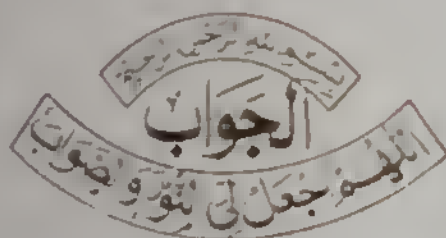 بسم الله الرحمن الرحيم
الجواب
اللهم اجعل لي النور و الصواب